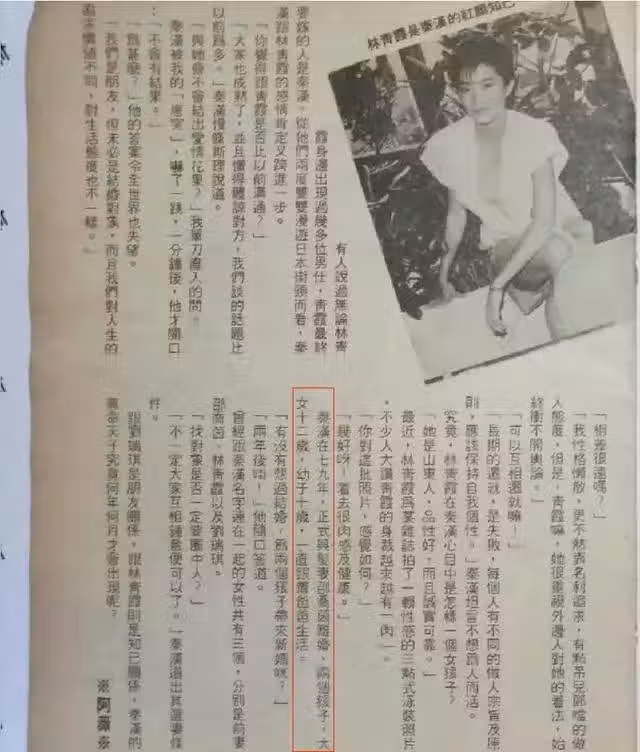 林青霞是秦漢的紅顏知己
有人說過無論林青
霞身邊出現過幾多位男仕，青霞最終
要嫁的人是秦漢。從他們兩度雙雙漫遊日本街頭而看，秦
漢跟林青霞的感情肯定又跨進一步。
「你覺得跟青霞是否比以前溝通？」
「大家也成熟了，並且懂得體諒對方，我們談的話題比
以前爲多。」秦漢慢條斯理說道。
「與她會不會結出愛情花果？」我單刀直入的問。
秦漢被我的「應突」嚇了一跳，一分鐘後，他才開口
：「不會有結果。」
「爲甚麼？」他的答案令全世界也失望。
「我們是朋友，但未必是結婚對象，而且我們對人生的
追求價值不同，對生活態度也不一樣。」
「相差很遠嗎？」
「我性格懶散，更不熱衷名利追求，有點吊兒郎當的做
人態度，但是，青霞嘛，她很重視外邊人對她的看法，始
終衝不開輿論。」
「可以互相遷就嘛！」
「長期的遷就，是失敗，每個人有不同的做人宗旨及原
則，應該保持自我個性。」秦漢坦言不想爲人而活。
究竟，林青霞在秦漢心目中是怎樣一個女孩子？
「她是山東人，品性好，而且誠實可靠。」
最近，林青霞爲某雜誌拍了一輯性感的三點式泳裝照片
，不少人大讚青霞的身裁越來越有「肉」。
「你對這批照片，感覺如何？」
「幾好呀，看去很肉感及健康。」
秦漢在七九年，正式與髮妻邵喬茵離婚，兩個孩子，大
女十二歲，幼子十歲，一直跟着爸爸生活。
「有沒有想過結婚，爲兩個孩子帶來新媽咪？」
「兩年後啦，」他隨口答道。
曾經跟秦漢名字連在一起的女性共有三個，分別是前妻
邵喬茵、林青霞以及劉瑞琪。
「找對象是否一定要圈中人？」
「不一定大家互相鍾意便可以了。」秦漢道出其選妻條
件。
跟劉瑞琪是朋友關係，跟林青霞則是知己關係，秦漢的
真命天子究竟何年何月才會出現呢？
※阿薇※